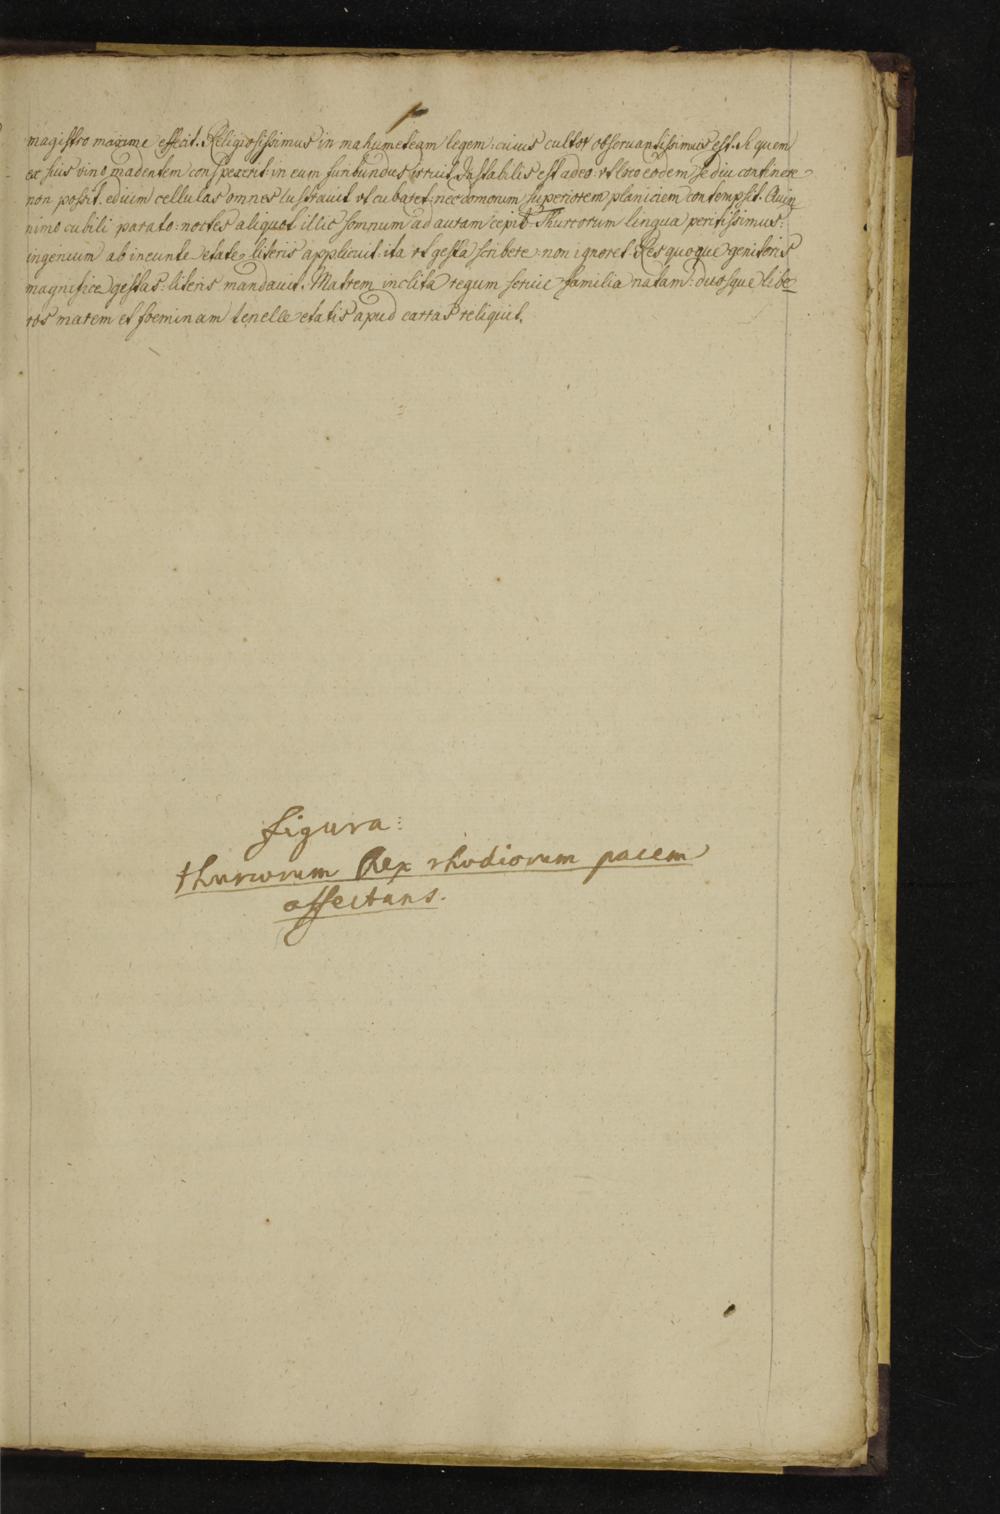 magistro maxime effecit. Religiosissimus in mahumeteam legem: cuius cultor obseruantissimus est. Si quem
ex suis vino madentem conspexerit: in eum furibundus irruit. Instabilis est adeo: vt loco eodem se diu continere
non possit. eduim cellulas omnes lustrauit vt cubaret: nec domorum superiorem planiciem contempsit. Quin
nimo cubili parato: noctes aliquot illic somnum ad auram cepit. Thurcorum lingua peritissimus:
ingenium ab ineunte etate literis applicuit: ita vt gesta scribere non ignoret. Res quoque genitoris
magnifice gestas: literis mandauit. Matrem inclita regum seruie familia natam: duosque libe
ros marem et foeminam tenelle etatis apud carras reliquit.
figura:
thurcorum Rex rhodiorum pacem
affectans.